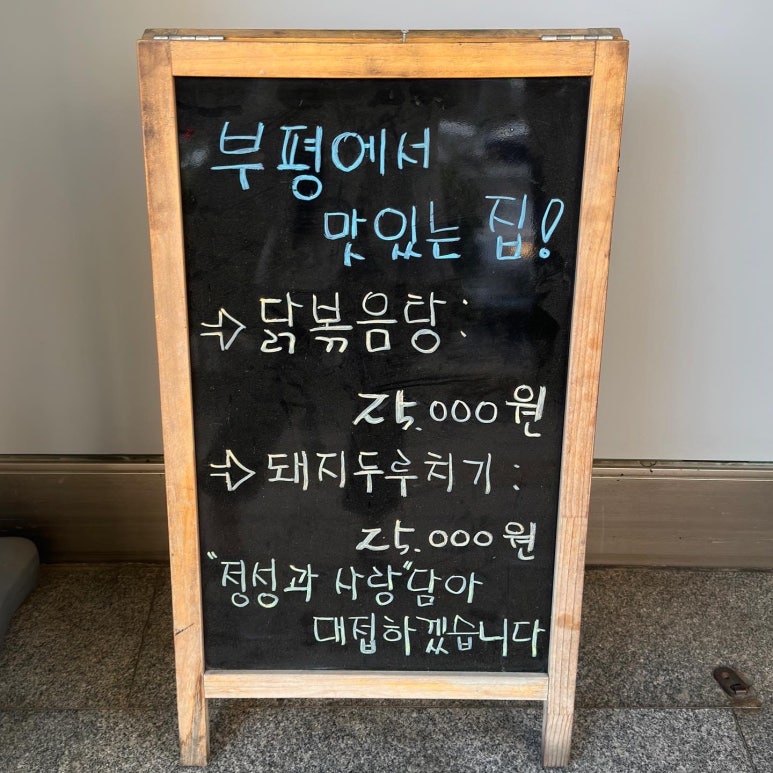 부평에서
맛있는 집!
⇨ 닭볶음탕 :
25.000원
⇨ 돼지두루치기 :
25.000원
"정성과 사랑"담아
대접하겠습니다